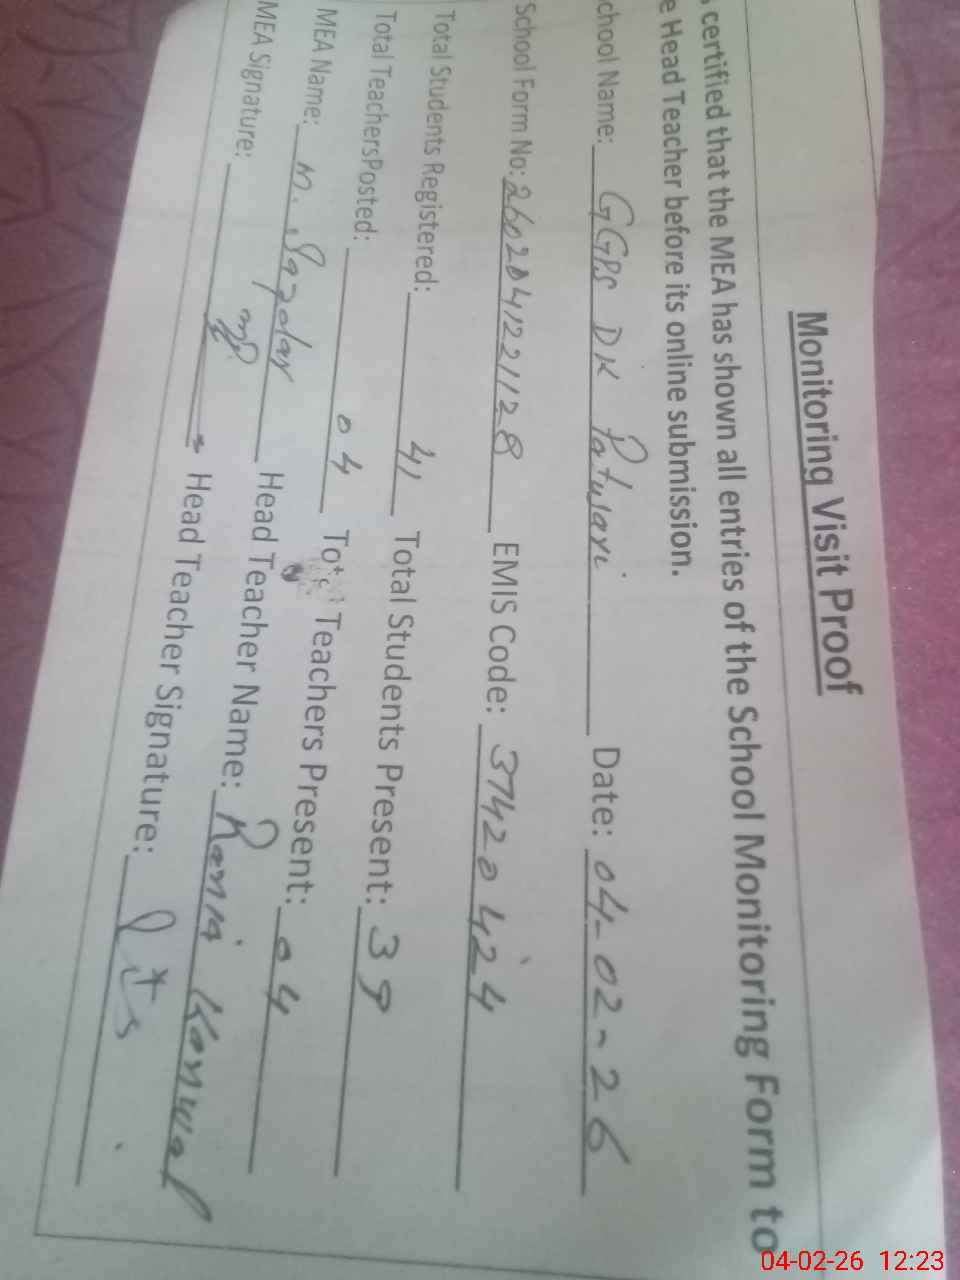 Monitoring Visit Proof
certified that the MEA has shown all entries of the School Monitoring Form to
e Head Teacher before its online submission.
chool Name: GGPS DK Date: 04-02-26
School Form No: 2602041221128 EMIS Code: 37420424
Total Students Registered: 41 Total Students Present: 39
Total TeachersPosted: 04 Teachers Present: 04
MEA Name: M. Head Teacher Name: Rania Kanwal
MEA Signature: Head Teacher Signature:
04-02-26 12:23